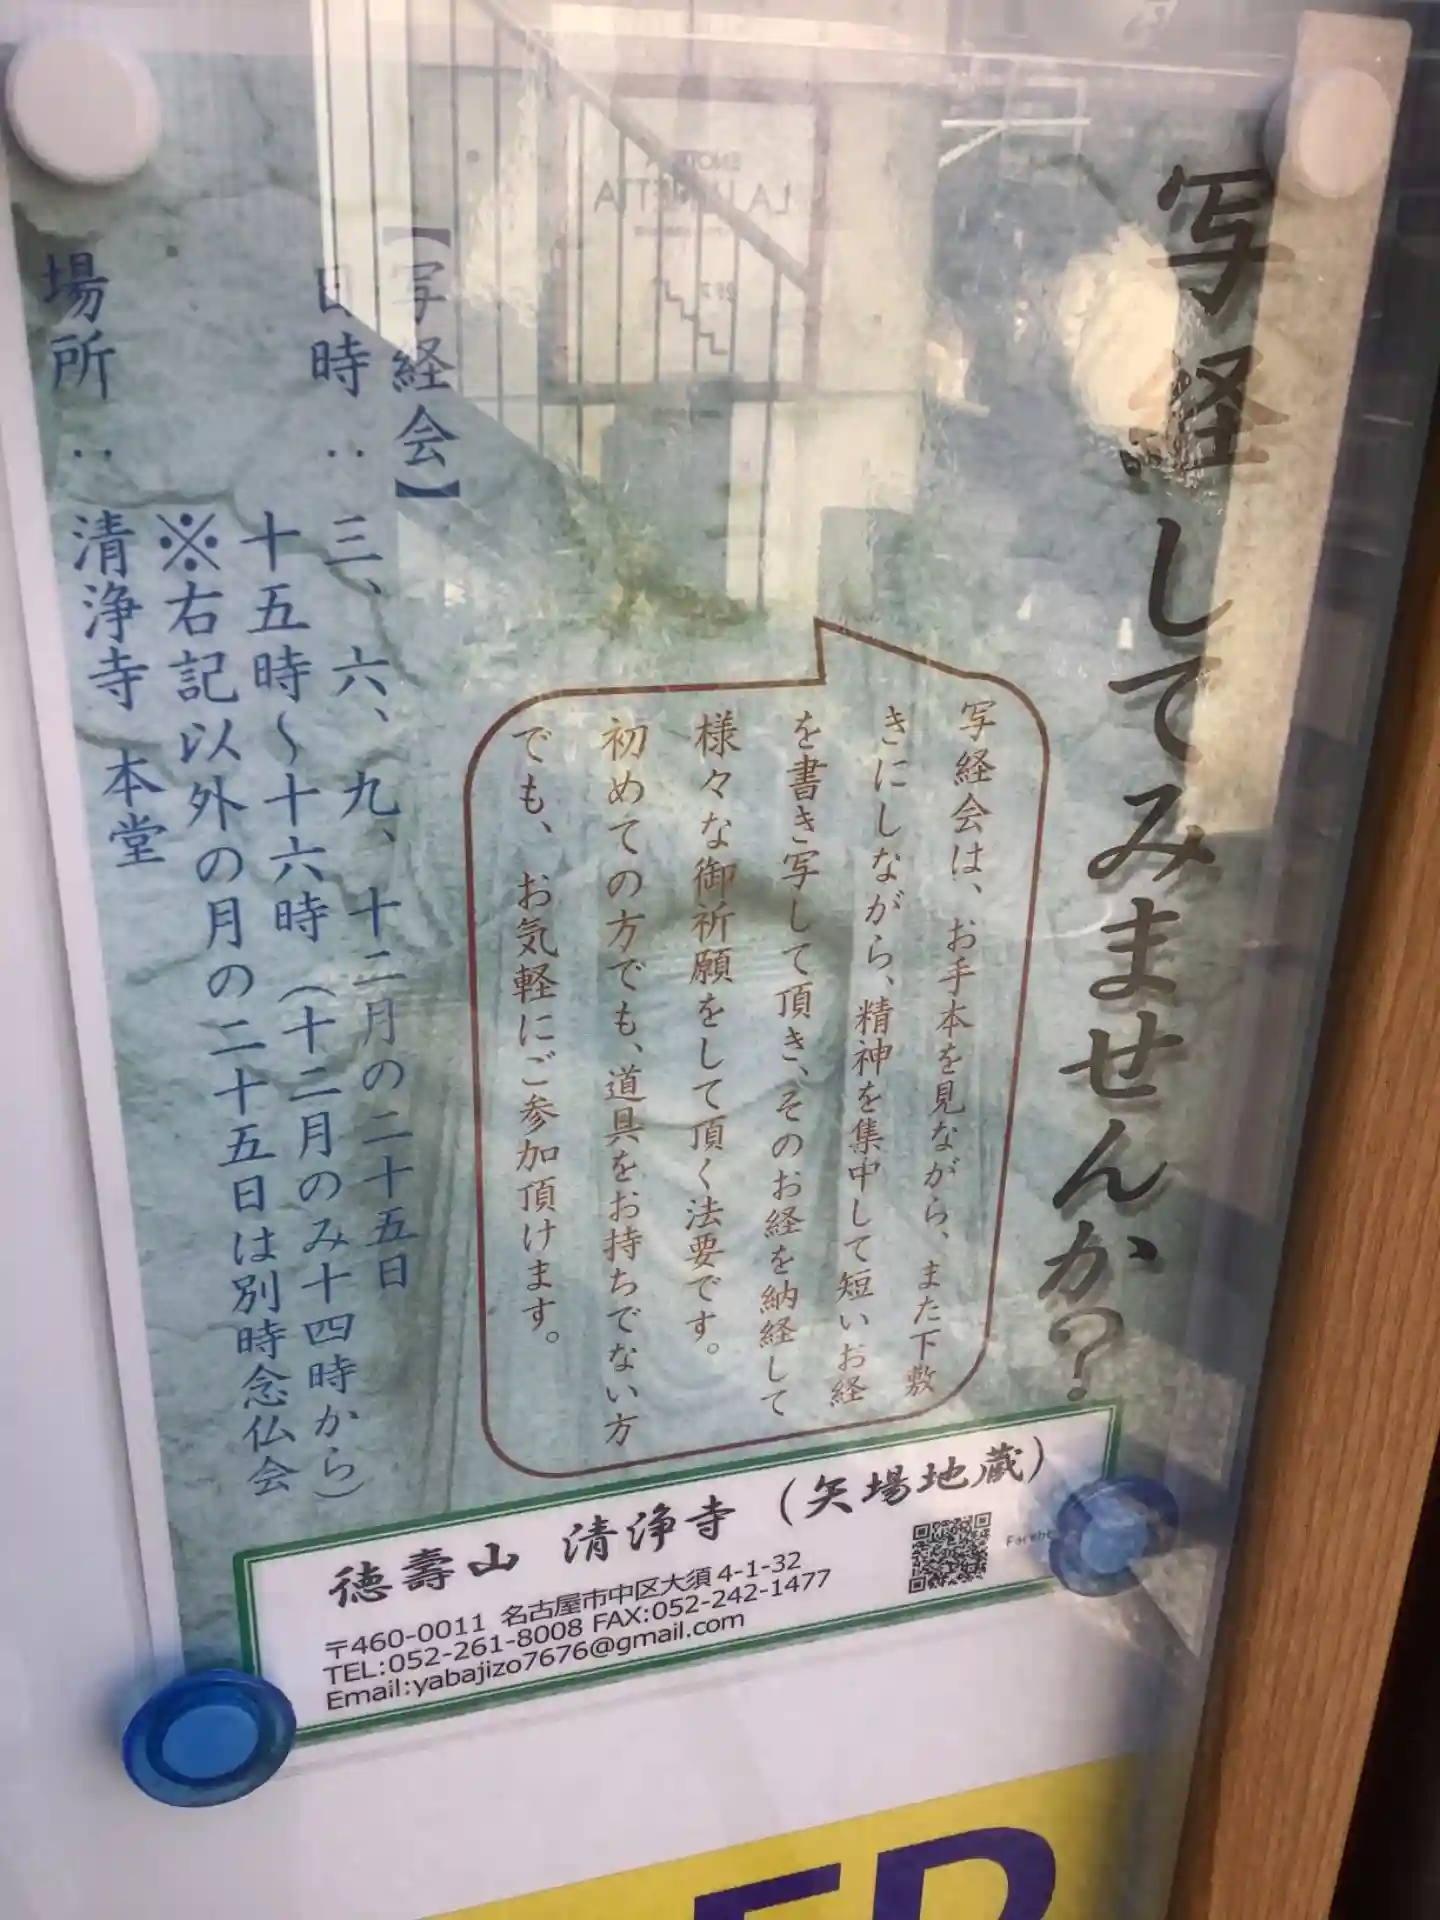 写経してみませんか?
写経会は、お手本を見ながら、また下敷
きにしながら、精神を集中して短いお経
を書き写して頂き、そのお経を納経して
様々な御祈願をして頂く法要です。
初めての方でも、道具をお持ちでない方
でも、お気軽にご参加頂けます。
【写経会】
日時：三、六、九、十二月の二十五日
十五時〜十六時（十二月のみ十四時から）
※右記以外の月の二十五日は別時念仏会
場所：清浄寺 本堂
徳壽山 清浄寺（矢場地蔵）
〒460-0011 名古屋市中区大須4-1-32
TEL:052-261-8008 FAX:052-242-1477
Email:yabajizo7676@gmail.com